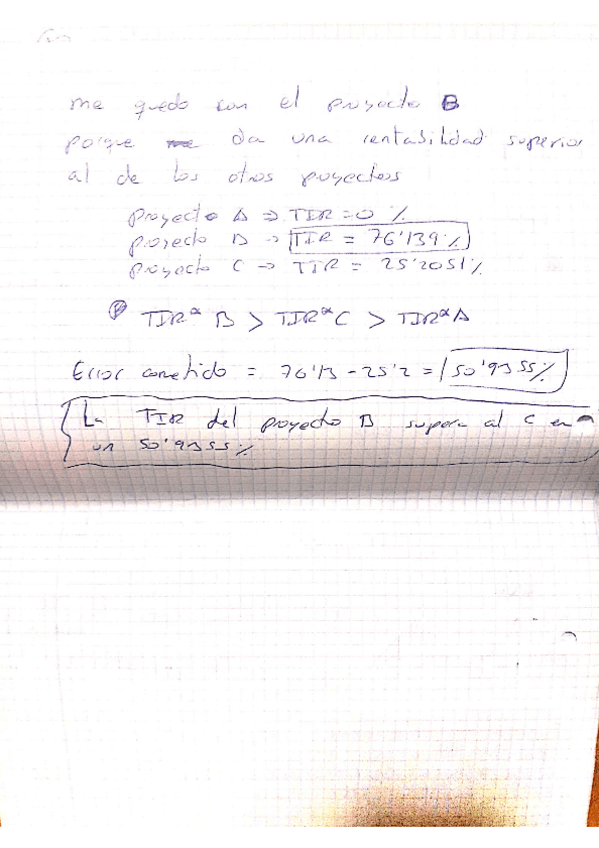 me quedo con el proyecto B
porque me da una rentabilidad superior
al de los otros poyectos
proyecto A => TIR = 0 %
poyecto B -> TIR = 76'139 %
proyecto C => TIR = 25'2051 %
TIRª B > TIRª C > TIRª A
Error cometido = 76'13 - 25'2 = 50'9355 %
La TIR del proyecto B supera al C en
un 50'9355 %